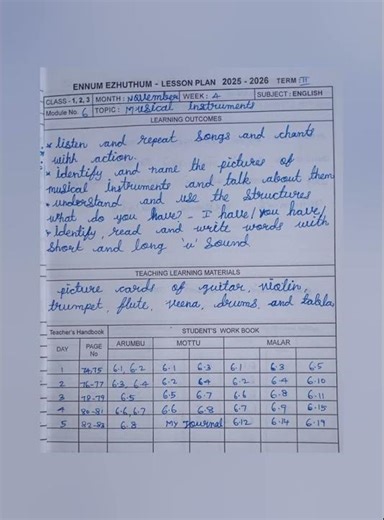 ENNUM EZHUTHUM - LESSON PLAN 2025 - 2026 TERM III
CLASS - 1, 2, 3 MONTH : November WEEK : 4 SUBJECT : ENGLISH
Module No. 6 TOPIC : Musical Instruments
LEARNING OUTCOMES
* listen and repeat songs and chants
with action.
* identify and name the pictures of
musical instruments and talk about them
* understand and use the structures
what do you have - I have / you have /
* Identify, read and write words with
short and long 'u' sound
TEACHING LEARNING MATERIALS
picture cards of guitar, violin,
trumpet, flute, veena, drums and tabla
Teacher's Handbook STUDENT'S WORK BOOK
DAY PAGE No ARUMBU MOTTU MALAR
1 74,75 6.1, 6.2 6.1 6.3 6.1 6.3 6.5
2 76-77 6.3, 6.4 6.2 6.4 6.2 6.4 6.10
3 78-79 6.5 6.5 6.7 6.6 6.8 6.11
4 80-81 6.6, 6.7 6.6 6.8 6.7 6.9 6.15
5 82-83 6.8 My Journal 6.12 6.14 6.19